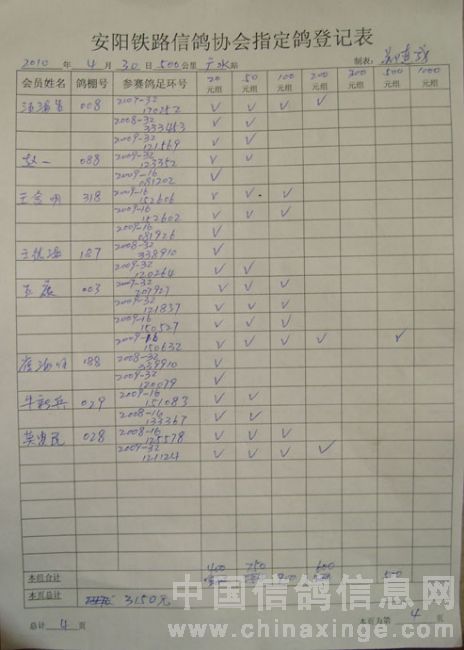 安阳铁路信鸽协会指定鸽登记表
2010 年 4 月 30 日 500公里 广水站 制表:
会员姓名 鸽棚号 参赛鸽足环号 20元组 50元组 100元组 200元组 300元组 500元组 1000元组
008 2009-32 120252 √ √ √ √
2008-32 333453 √ √
2009-32 121569 √ √
赵一 088 2009-32 123352 √ √
2009-16 081202 √
318 2009-16 152606 √ √ √
2009-16 152602 √ √ √
2009-16 081926 √
187 2008-32 338910 √
2009-32 120264 √ √
003 2009-32 √ √ √
2009-32 121837 √ √ √
2009-16 150527 √ √ √
2009-16 150632 √ √ √ √ √
188 2008-32 338910 √
2009-32 120079 √
029 2009-16 151083 √ √
2008-16 133367 √ √
028 2008-16 125578 √ √ √
2009-32 121124 √ √ √ √
本组合计 400 750 600 500
本页总计 3150元
总计 4 页 本页为第 4 页
中国信鸽信息网
www.chinaxinge.com